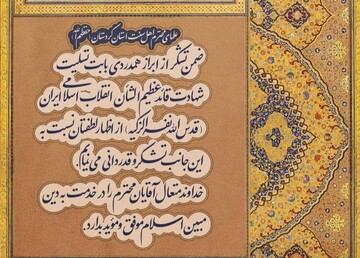 علمای محترم اهل سنت استان کردستان (حفظهم الله)
ضمن تشکر از ابراز همدردی بابت تسلیت
شهادت قائد عظیم الشان انقلاب اسلامی ایران
(قدس الله نفسه الزکیه) از اظهار لطفتان نسبت به
این جانب تشکر و قدردانی می نمایم.
خداوند متعال آقایان محترم را در خدمت به دین
مبین اسلام موفق و مؤید بدارد.